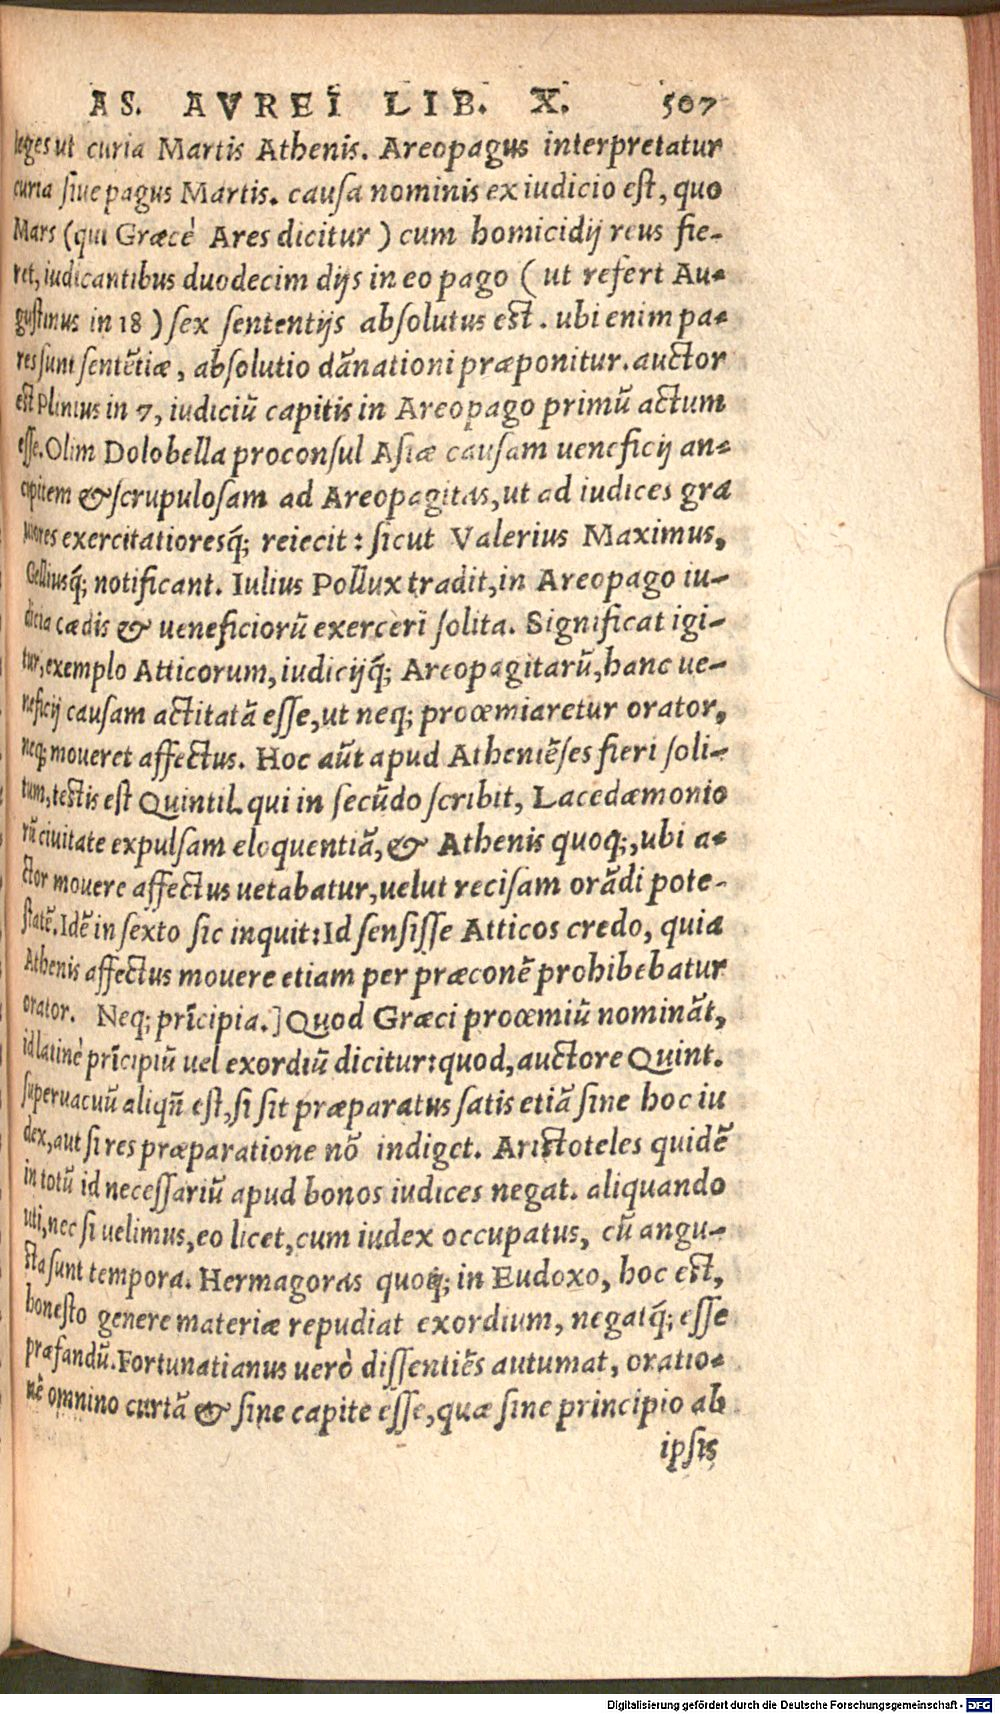 AS. AVREI LIB. X. 507
leges ut curia Martis Athenis. Areopagus interpretatur
curia ſiue pagus Martis. cauſa nominis ex iudicio eſt, quo
Mars (qui Græcè Ares dicitur) cum homicidij reus fie-
ret, iudicantibus duodecim dijs in eo pago (ut refert Au-
guſtinus in 18) ſex ſententijs abſolutus eſt. ubi enim pa-
res ſunt ſentẽtiæ, abſolutio dãnationi præponitur. auctor
eſt Plinius in 7, iudiciũ capitis in Areopago primũ actum
eſſe. Olim Dolobella proconſul Aſiæ cauſam ueneficij an-
cipitem & ſcrupuloſam ad Areopagitas, ut ad iudices gra
uiores exercitatioresq́; reiecit: ſicut Valerius Maximus,
Gelliusq́; notificant. Iulius Pollux tradit, in Areopago iu-
dicia cædis & ueneficiorũ exerceri ſolita. Significat igi-
tur, exemplo Atticorum, iudicijq́; Areopagitarũ, hanc ue-
neficij cauſam actitatã eſſe, ut neq; prooemiaretur orator,
neq; moueret affectus. Hoc aũt apud Atheniẽſes fieri ſoli-
tum, teſtis eſt Quintil. qui in ſecũdo ſcribit, Lacedæmonio
rũ ciuitate expulſam eloquentiã, & Athenis quoq;, ubi a-
ctor mouere affectus uetabatur, uelut reciſam orãdi pote-
ſtatẽ. Idẽ in ſexto ſic inquit: Id ſenſiſſe Atticos credo, quia
Athenis affectus mouere etiam per præconẽ prohibebatur
orator. Neq; prĩcipia.] Quod Græci prooemiũ nominãt,
id latinè prĩcipiũ uel exordiũ dicitur: quod, auctore Quint.
ſuperuacuũ aliqñ eſt, ſi ſit præparatus ſatis etiã ſine hoc iu
dex, aut ſi res præparatione nõ indiget. Ariſtoteles quidẽ
in totũ id neceſſariũ apud bonos iudices negat. aliquando
uti, nec ſi uelimus, eo licet, cum iudex occupatus, cũ angu-
ſta ſunt tempora. Hermagoras quoq; in Eudoxo, hoc eſt,
honeſto genere materiæ repudiat exordium, negatq́; eſſe
præfandũ. Fortunatianus uerò diſſentiẽs autumat, oratio-
nẽ omnino curtã & ſine capite eſſe, quæ ſine principio ab
ipſis
Digitalisierung gefördert durch die Deutsche Forschungsgemeinschaft - DFG